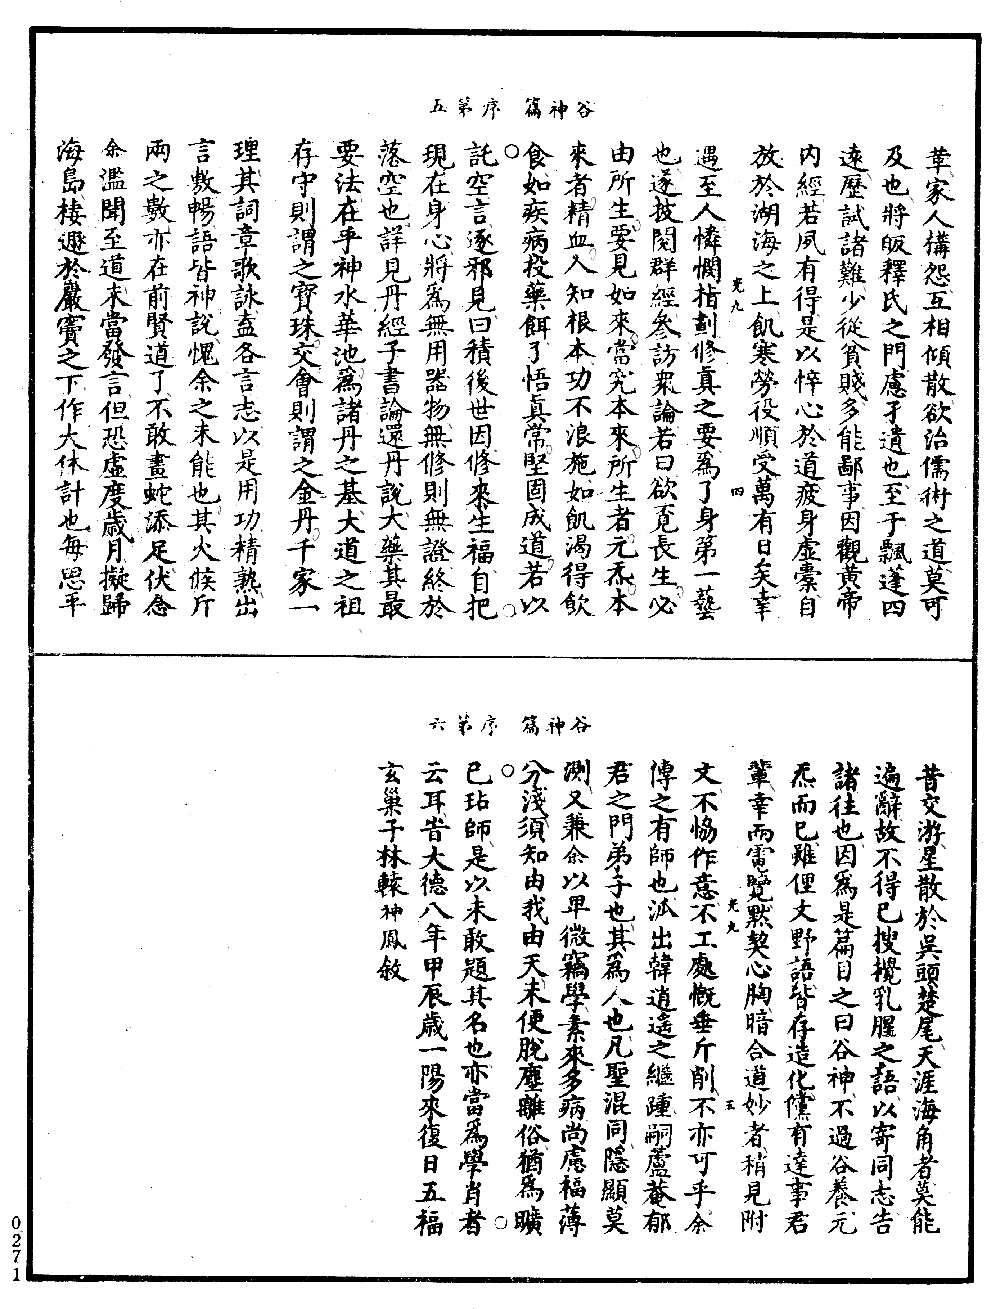 谷神篇 序 第五
葦家人構怨互相傾散欲治儒術之道莫可
及也將皈釋氏之門慮孑遺也至于飄蓬四
遠歷試諸難少從貧賤多能鄙事因觀黃帝
內經若夙有得是以悴心於道疲身虛橐自
放於湖海之上飢寒勞役順受萬有日矣幸
光九 四
遇至人憐憫指劃修真之要為了身第一藝
也遂技閱群經參訪眾論若曰欲覓長生必
由所生要見如來當究本來所生者元炁本
來者精血人知根本功不浪施如飢渴得飲
食如疾病投藥餌了悟真常堅固成道若以
託空言逐邪見曰積後世因修來生福自把
現在身心將為無用器物無修則無證終於
落空也詳見丹經子書論還丹說大藥其最
要法在乎神水華池為諸丹之基大道之祖
存守則謂之寶珠交會則謂之金丹千家一
理其詞章歌詠盍各言志以是用功精熟出
言敷暢語皆神說愧余之未能也其火候斤
兩之數亦在前賢道了不敢畫蛇添足伏念
余濫聞至道未當發言但恐虛度歲月擬歸
海島棲遯於巖竇之下作大休計也每思平
谷神篇 序 第六
昔交游星散於吳頭楚尾天涯海角者莫能
遍辭故不得已搜攬乳腥之語以寄同志告
諸往也因為是篇目之曰谷神不過谷養元
炁而已雖俚文野語皆存造化儻有達事君
輩幸而電覽默契心胸暗合道妙者稍見附
光九 五
文不恊作意不工處慨垂斤削不亦可乎余
傳之有師也泒出韓逍遙之繼踵嗣蘆菴郁
君之門弟子也其為人也凡聖混同隱顯莫
測又兼余以卑微竊學素來多病尚慮福薄
分淺須知由我由天未便脫塵離俗猶為曠
已玷師是以未敢題其名也亦當為學肖者
云耳旹大德八年甲辰歲一陽來復日五福
玄巢子林轅神鳳敘
0271